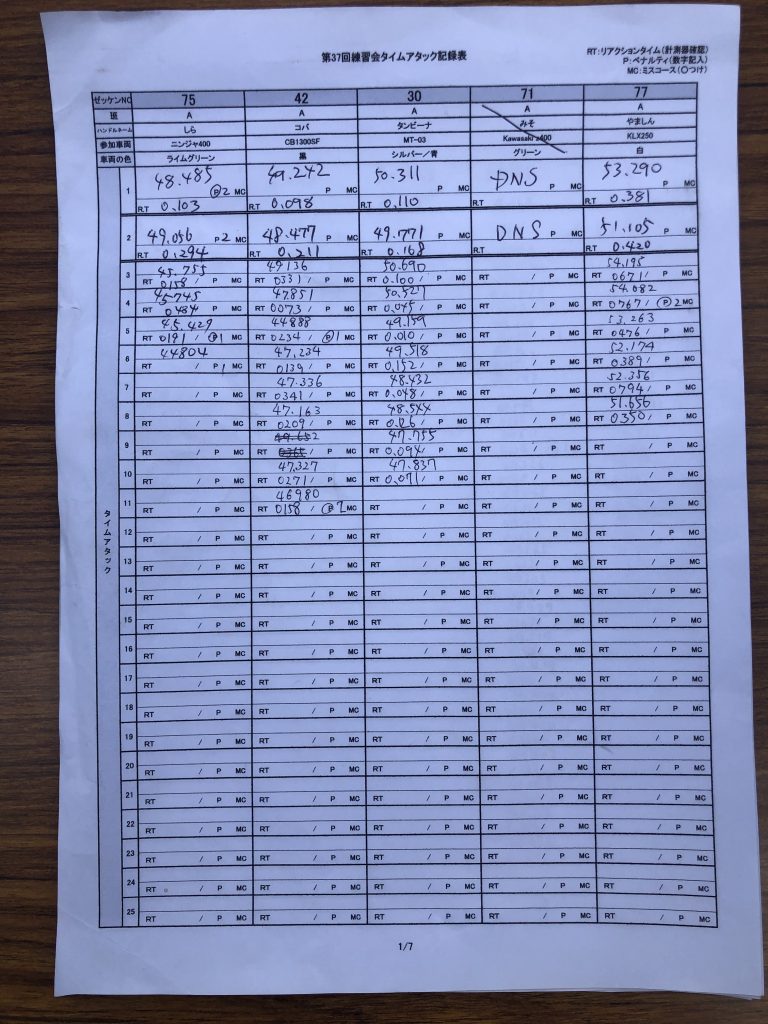 第37回練習会タイムアタック記録表
RT:リアクションタイム(計測器確認)
P:ペナルティ(数字記入)
MC:ミスコース(〇つけ)
ゼッケンNO 75 42 30 71 77
班 A A A A A
ハンドルネーム しら コバ タンビーナ みそ やましん
参加車両 ニンジャ400 CB1300SF MT-03 Kawasaki z400 KLX250
車両の色 ライムグリーン 黒 シルバー/青 グリーン 白
タイムアタック
1 48.485 P2 MC 49.242 P MC 50.311 P MC DNS P MC 53.290 P MC
R.T 0.103 R.T 0.098 R.T 0.110 R.T R.T 0.381
2 49.056 P2 MC 48.477 P MC 49.771 P MC DNS P MC 51.105 P MC
R.T 0.294 R.T 0.211 R.T 0.168 R.T R.T 0.420
3 45.755 49136 50.690 54.195
RT 0158 / P MC RT 0331 / P MC RT 0.100 / P MC RT / P MC RT 0671 / P MC
4 45745 47851 50.527 54.082
RT 0484 / P MC RT 0073 / P MC RT 0.045 / P MC RT / P MC RT 0767 / P2 MC
5 45.429 44888 49.159 53.263
RT 0191 / P1 MC RT 0234 / P1 MC RT 0.010 / P MC RT / P MC RT 0476 / P MC
6 44804 47.234 49.518 52.174
RT / P1 MC RT 0139 / P MC RT 0.152 / P MC RT / P MC RT 0389 / P MC
7 47.336 48.432 52.356
RT / P MC RT 0341 / P MC RT 0.048 / P MC RT / P MC RT 0794 / P MC
8 47.163 48.544 51.656
RT / P MC RT 0209 / P MC RT / P MC RT / P MC RT 0350 / P MC
9 49.652 47.755
RT / P MC RT 0365 / P MC RT 0.094 / P MC RT / P MC RT / P MC
10 47.327 47.837
RT / P MC RT 0271 / P MC RT 0.071 / P MC RT / P MC RT / P MC
11 46980
RT / P MC RT 0158 / P2 MC RT / P MC RT / P MC RT / P MC
12
RT / P MC RT / P MC RT / P MC RT / P MC RT / P MC
13
RT / P MC RT / P MC RT / P MC RT / P MC RT / P MC
14
RT / P MC RT / P MC RT / P MC RT / P MC RT / P MC
15
RT / P MC RT / P MC RT / P MC RT / P MC RT / P MC
16
RT / P MC RT / P MC RT / P MC RT / P MC RT / P MC
17
RT / P MC RT / P MC RT / P MC RT / P MC RT / P MC
18
RT / P MC RT / P MC RT / P MC RT / P MC RT / P MC
19
RT / P MC RT / P MC RT / P MC RT / P MC RT / P MC
20
RT / P MC RT / P MC RT / P MC RT / P MC RT / P MC
21
RT / P MC RT / P MC RT / P MC RT / P MC RT / P MC
22
RT / P MC RT / P MC RT / P MC RT / P MC RT / P MC
23
RT / P MC RT / P MC RT / P MC RT / P MC RT / P MC
24
RT / P MC RT / P MC RT / P MC RT / P MC RT / P MC
25
RT / P MC RT / P MC RT / P MC RT / P MC RT / P MC
1/7